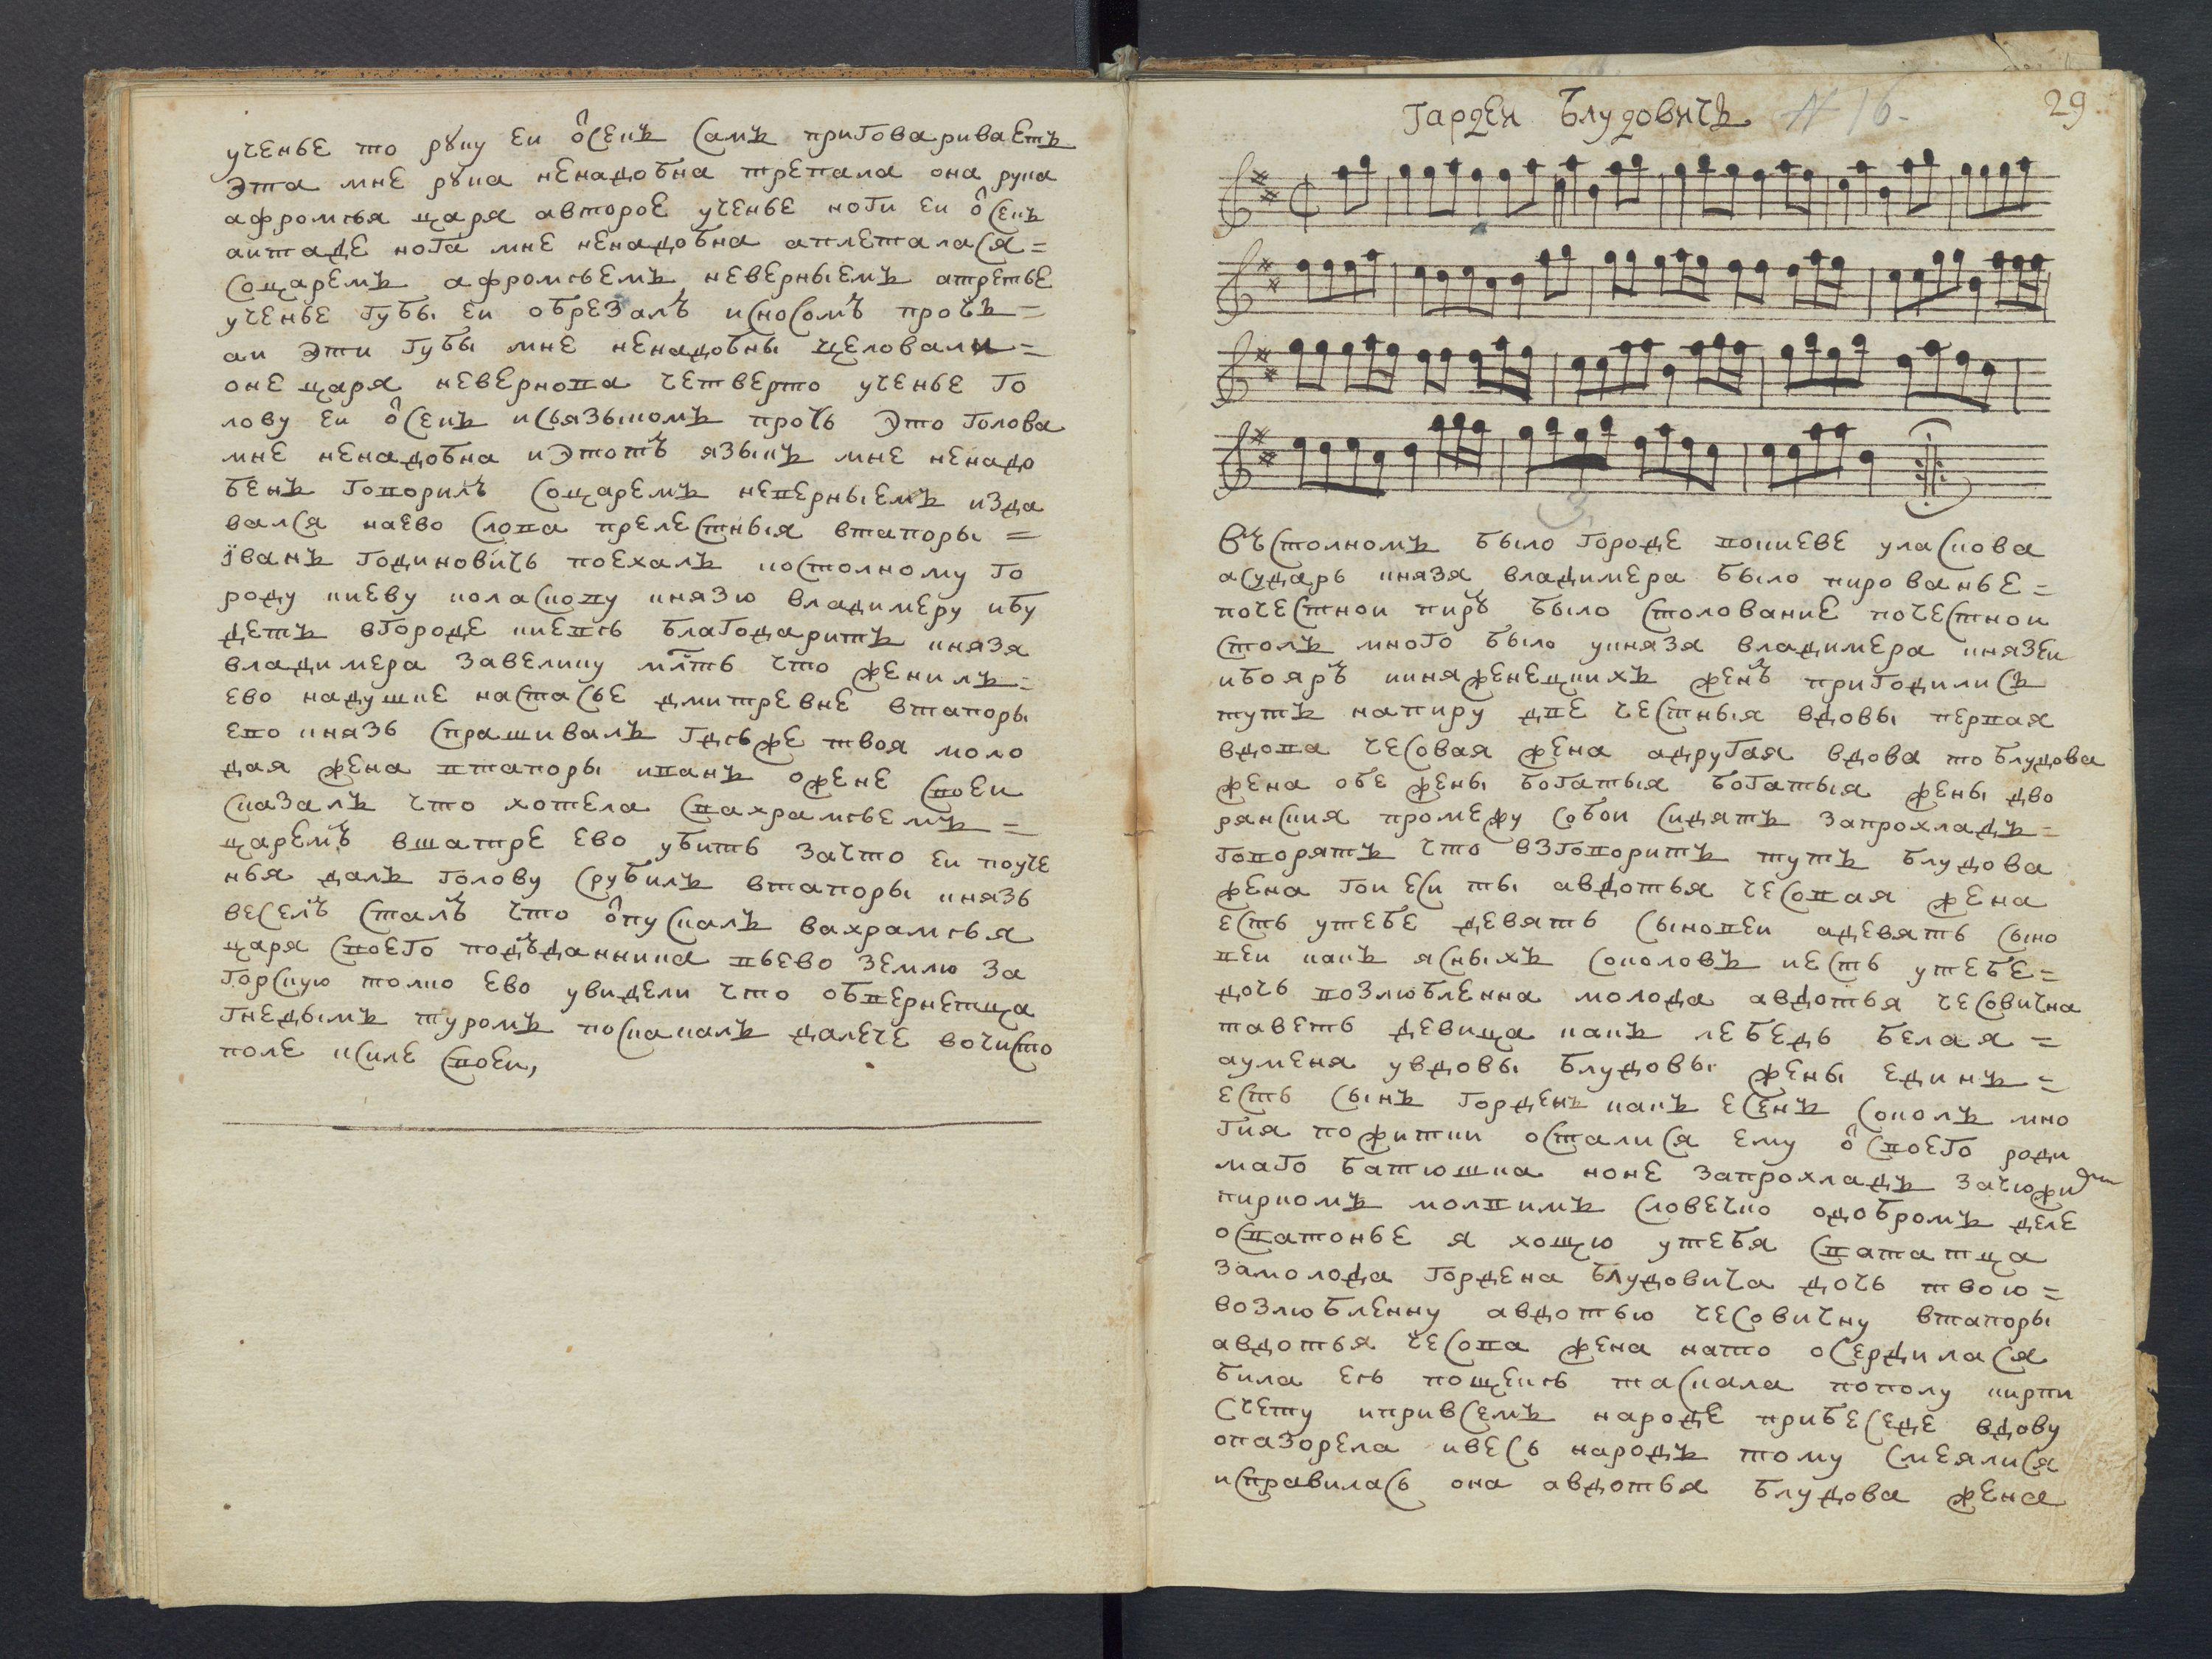 ученье то рꙋку еи ѡ̂секъ самъ приговариваетъ
Эта мне рꙋка ненадобна трепала она рука
афромѣя царя авторое ученье ноги еи ѡ̂секъ
аитаде нога мне ненадобна аплеталася =
соцаремъ афромѣемъ невернымъ атретье
ученье губы еи обрезалъ исносомъ прочъ =
аи Эти губы мне ненадобны целовали =
оне царя невернова четверто ученье го
лову еи ѡ̂секъ исъязыкомъ прочь Это голова
мне ненадобна иЭтотъ языкъ мне ненадо
бенъ говорилъ соцаремъ невернымъ изда
вался наево слова прелестныя втапоры =
їванъ годиновичь поехалъ костолному го
роду киеву коласкову князю владимеру ибу
детъ вгороде киевѣ благодаритъ князя
владимера завелику млсть что женилъ =
ево надушке настасье дмитревне втапоры
ево князь спрашивалъ гдѣже твоя моло
дая жена втапоры иванъ ожене своеи
сказалъ что хотела свахрамѣемъ =
царемъ вшатре ево убить зачто еи поуче
нья далъ голову срубилъ втапоры князь
веселъ сталъ что ѡ̂пускалъ вахрамѣя
царя своего подъданника вьево землю за
горскую толко ево увидели что обвернетца
гнедымъ туромъ поскакалъ далече вочисто
поле ксиле своеи,
Гарден Блудовичь N 16.
29
3
Въстолномъ было городе вокиеве уласкова
асударь князя владимера было пированье =
почестнои пиръ было столование почестнои
столъ много было укнязя владимера князеи
ибояръ икняженецкихъ женъ пригодились
тутъ напиру две честныя вдовы первая
вдова чесовая жена адругая вдова то блудова
жена обе жены богатыя богатыя жены дво
рянския промежу собои сидятъ запрохладъ =
говорятъ что взговоритъ тутъ блудова
жена гои еси ты авдотья чесовая жена
есть утебе девять сыновеи адевять сыно
веи какъ ясныхъ соколовъ иесть утебе =
дочь возлюбленна молода авдотья чесовична
таветь девица какъ лебедь белая =
ауменя увдовы блудовы жены единъ =
есть сынъ горденъ какъ есенъ соколъ мно
гия пожитки осталися ему ѡ̂ своего роди
маго батюшка ноне запрохладъ зачюжи
пиркомъ молвимъ словечко одобромъ деле
осватонье я хощю утебя сватат��ца
замолода гордена блудовича дочь твою =
возлюбленну авдотью чесовичну втапоры
авдотья чесова жена нато осердилася
била еѣ пощекѣ таскала пополу кирпи
счету ипривсемъ народе прибеседе вдову
опазорела ивесь народъ тому смеялися
исправилась она авдотья блудова жена